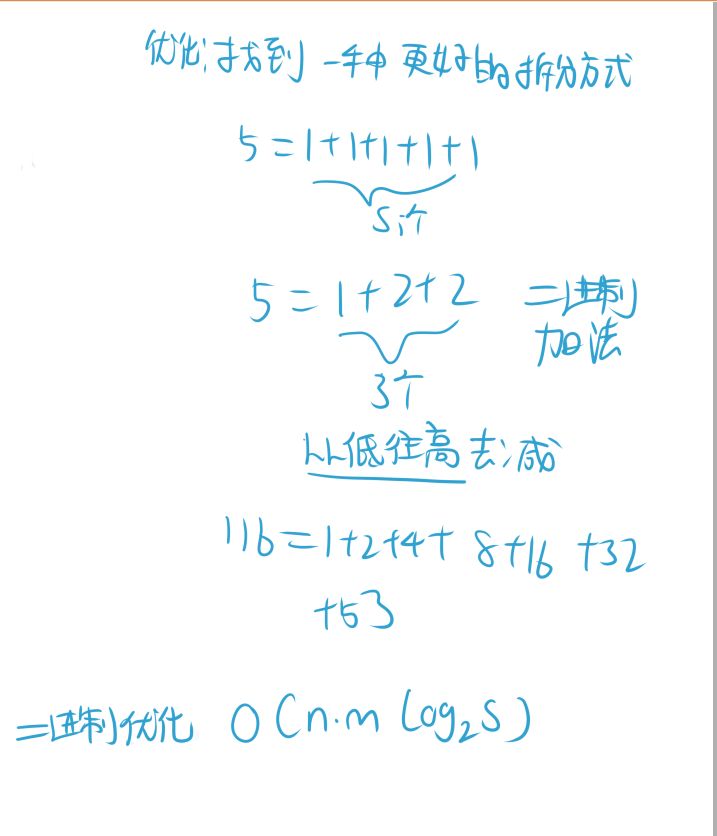 优化:找到一种更好的拆分方式
5=1+1+1+1+1
5个
5=1+2+2 二进制
加法
3个
从低往高去减
116=1+2+4+8+16+32
+53
二进制优化 O(n·m log₂S)